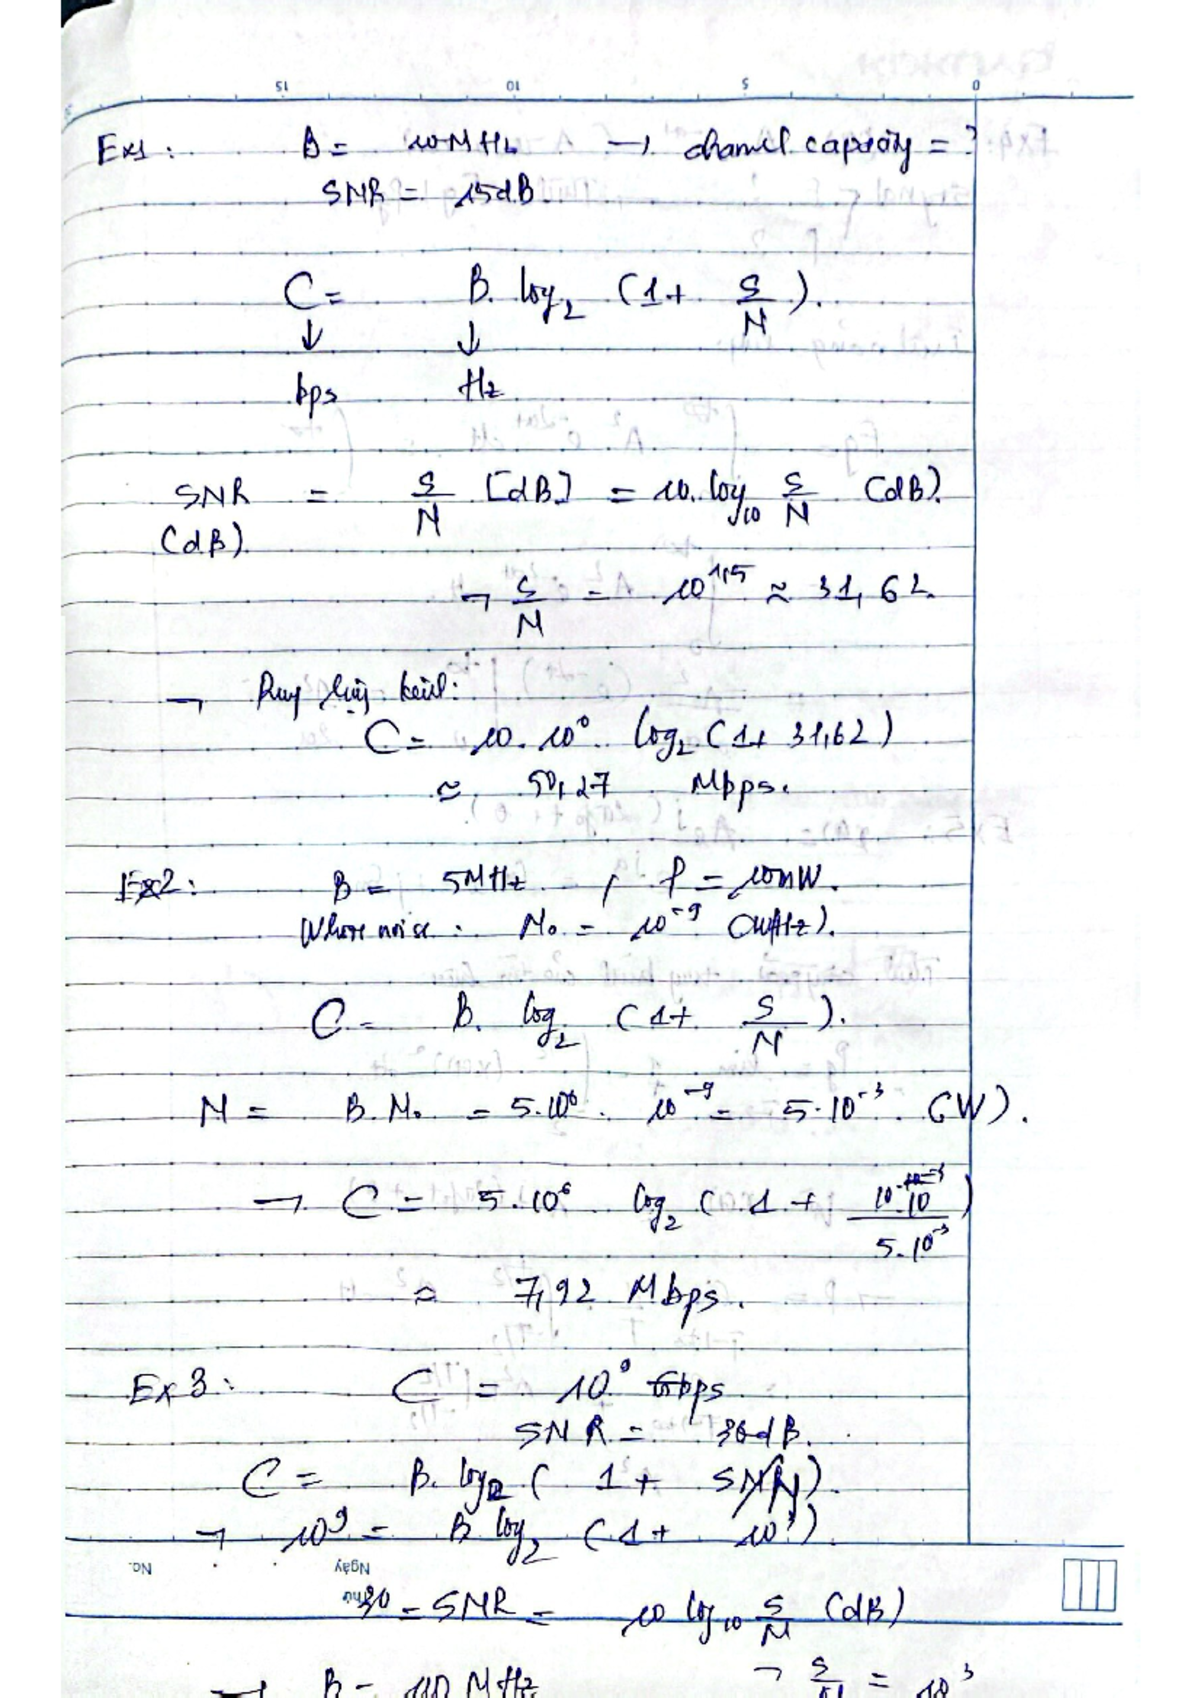 15 10 5 0
Ex1: B = 10MHz → channel capacity = ?
SNR = 15dB.
C = B. log₂ (1 + S/N).
↓ ↓
bps Hz
SNR = S/N [dB] = 10. log₁₀ S/N (dB)
(dB).
→ S/N = 10^1,5 ≈ 31,62.
→ Dung lượng kênh:
C = 10. 10⁶. log₂ (1 + 31,62)
≈ 50,27 Mbps.
Ex2: B = 5MHz , P = 10mW.
White noise: N₀ = 10⁻⁹ (W/Hz).
C = B. log₂ (1 + S/N).
N = B. N₀ = 5.10⁶. 10⁻⁹ = 5.10⁻³ (W).
→ C = 5.10⁶ log₂ (1 + 10.10⁻³/5.10⁻³)
≈ 7,92 Mbps.
Ex3: C = 10⁹ bps.
SNR = 30dB.
C = B. log₂ (1 + S/N).
→ 10⁹ = B log₂ (1 + 10³).
No. Ngày
30 = SNR = 10 log₁₀ S/N (dB)
→ B = MHz → S/N = 10³